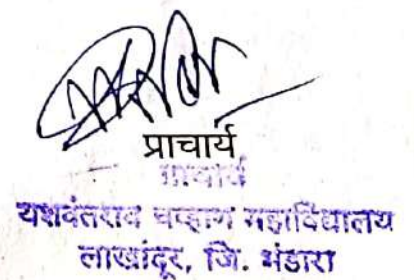 प्राचार्य
प्राचार्य
यशवंतराव चव्हाण महाविद्यालय
लाखांदूर, जि. भंडारा